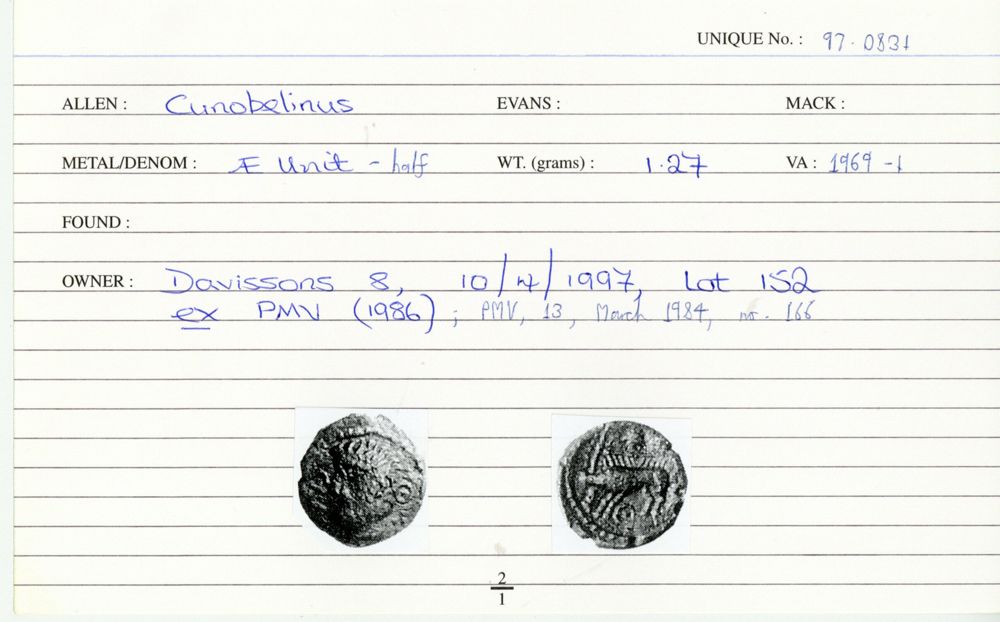 UNIQUE No. : 97.0831
ALLEN : Cunobelinus EVANS : MACK :
METAL/DENOM : Æ Unit - half WT. (grams) : 1.27 VA : 1969 -1
FOUND :
OWNER : Davissons 8, 10/iv/1997, Lot 152
ex PMV (1986) ; PMV, 13, March 1984, nr. 166
2
1